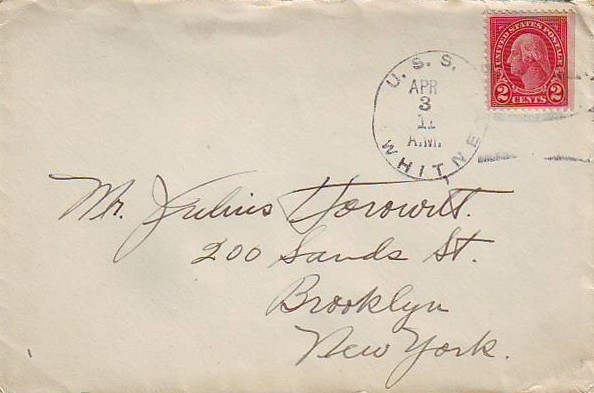 UNITED STATES POSTAGE
2 CENTS 2
U. S. S.
APR
3
11
A.M.
WHITNEY
Mr. Julius Horowitt.
200 Sands St.
Brooklyn
New York.